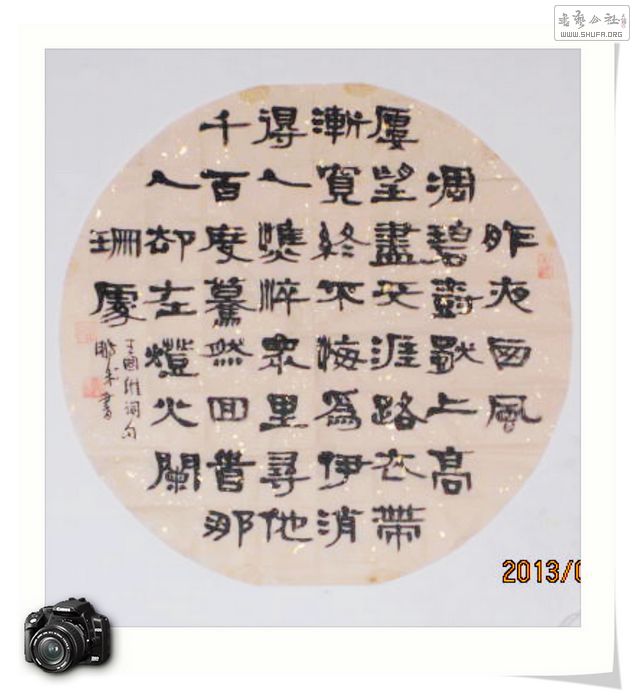 昨夜西風
凋碧樹獨上高
廔望盡天涯路衣帶
漸寬終不悔爲伊消
得人憔悴眾里尋他
千百度驀然回首那
人却在燈火闌
珊處
王國維詞句
書
WWW.SHUFA.ORG
2013/0
Canon